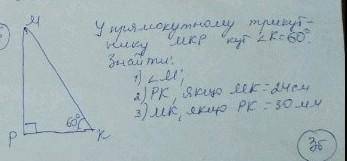 У прямокутному трикут-
нику МКР кут ∠K=60°
Знайти:
1) ∠M;
2) PK, якщо MK=24см
3) MK, якщо PK=30мм
M
60°
P
K
3б